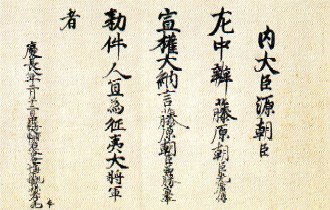 内大臣源朝臣
左中辨藤原朝臣光廣傳
宣權大納言藤原朝臣兼勝宣奉
勅件人宜為征夷大將軍
者
慶長八年二月十二日